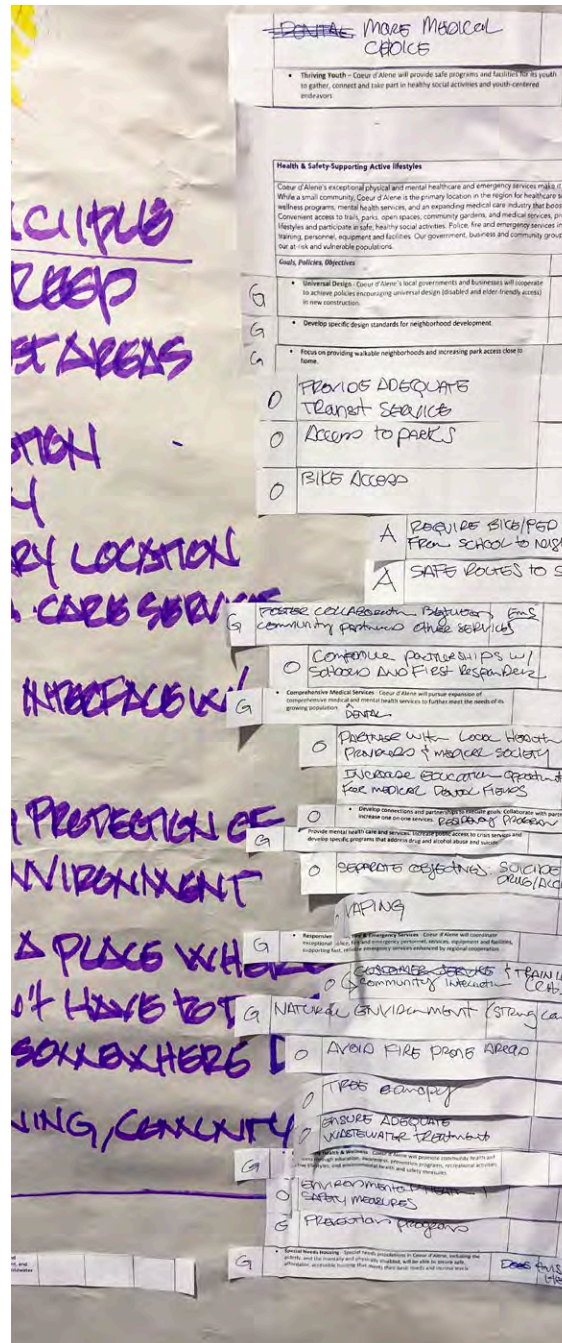 MORE MEDICAL
CHOICE
• Thriving Youth – Coeur d'Alene will provide safe programs and facilities for its youth
to gather, connect and take part in healthy social activities and youth-centered
endeavors.
Health & Safety-Supporting Active lifestyles
Coeur d'Alene's exceptional physical and mental healthcare and emergency services make it
While a small community, Coeur d'Alene is the primary location in the region for healthcare
wellness programs, mental health services, and an expanding medical care industry that
Convenient access to trails, parks, open spaces, community gardens, and medical services,
lifestyles and participate in safe, healthy social activities. Police, fire and emergency services
training, personnel, equipment and facilities. Our government, business and community
our at-risk and vulnerable populations.
Goals, Policies, Objectives
G • Universal Design - Coeur d'Alene's local governments and businesses will cooperate
to achieve policies encouraging universal design (disabled and elder-friendly access)
in new construction.
G • Develop specific design standards for neighborhood development.
G • Focus on providing walkable neighborhoods and increasing park access close to
home.
O PROVIDE ADEQUATE
Transit SERVICE
O Access to parks
O BIKE ACCESS
A REQUIRE BIKE/PED
FROM SCHOOL to
A SAFE ROUTES to S
G FOSTER COLLABORATION Between EMS
community partners other SERVICES
O CONTINUE partnerships w/
SCHOOLS AND FIRST RESPONDERS
G • Comprehensive Medical Services - Coeur d'Alene will pursue expansion of
comprehensive medical and mental health services to further meet the needs of its
growing population. DENTAL
O PARTNER WITH LOCAL HEALTH
PROVIDERS & MEDICAL SOCIETY
INCREASE EDUCATION
FOR MEDICAL DENTAL FIELDS
O • Develop connections and partnerships to mediate goals: Collaborate with
increase one on one services. RESIDENCY PROGRAM
G Provide mental health care and services. Increase public access to crisis services and
develop specific programs that address drug and alcohol abuse and suicide
O SEPARATE OBJECTIVES. SUICIDE
VAPING
G • Responsive Fire & Emergency Services - Coeur d'Alene will coordinate
exceptional police, fire and emergency personnel, services, equipment and facilities,
supporting fast, reliable emergency services enhanced by regional cooperation.
O CUSTOMER SERVICE &
Community Interaction
G NATURAL ENVIRONMENT
O AVOID FIRE PRONE AREAS
O TREE CANOPY
O ENSURE ADEQUATE
WASTEWATER TREATMENT
G Health & Wellness - Coeur d'Alene will promote community health and
through education, awareness, prevention programs, recreational activities,
lifestyles, and environmental health and safety measures.
O ENVIRONMENTAL HEALTH
SAFETY MEASURES
G PREVENTION programs
G • Special Needs Housing - Special needs populations in Coeur d'Alene, including the
elderly, and the mentally and physically disabled, will be able to secure safe,
affordable, accessible housing that meets their basic needs and
AREAS
LOCATION
CARE
INTERFACE W/
PROTECTION OF
ENVIRONMENT
A PLACE WHERE
HAVE TO
SOMEWHERE
COMMUNITY